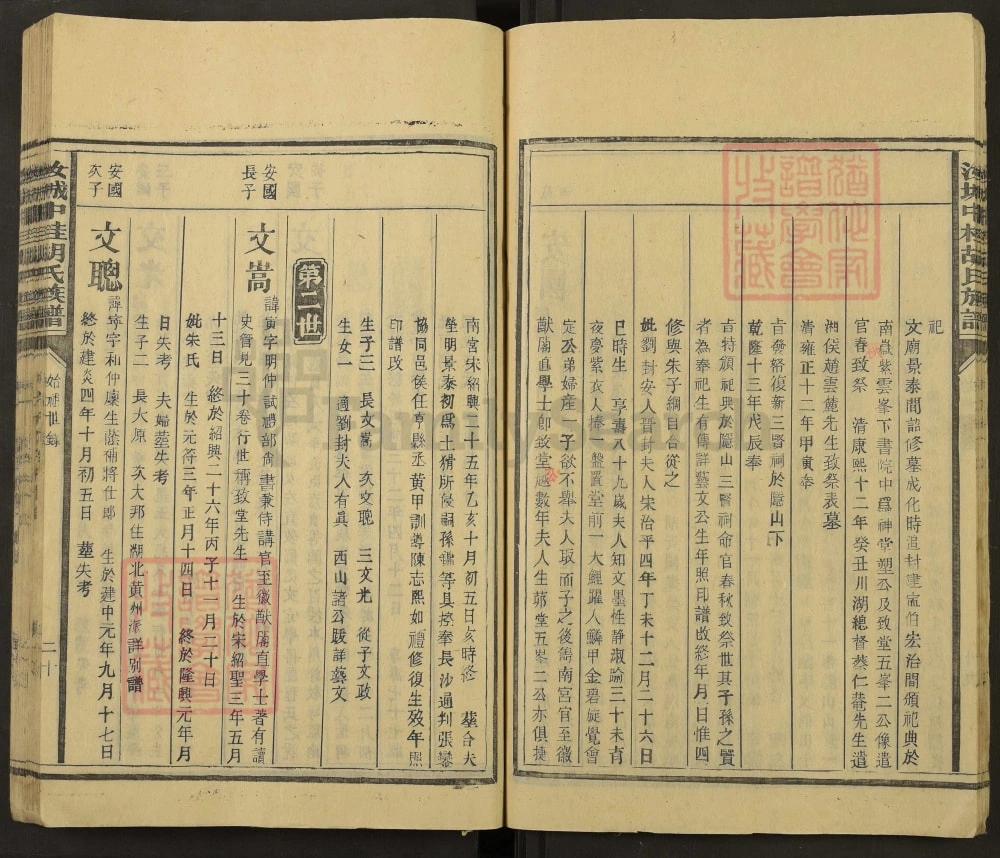 祀
文廟景泰間詔修墓成化時追封建寗伯宏治間頒祀典於
南嶽紫雲峯下書院中爲神堂塑公及致堂五峯二公像遣
官春致祭 清康熙十二年癸丑川湖總督蔡仁菴先生遣
湘侯趙雲麓先生致祭表墓
清雍正十二年甲寅奉
旨發帑復新三賢祠於隱山下
乾隆十三年戊辰奉
旨特頒祀典於隱山三賢祠命官春秋致祭世其子孫之賢
者為奉祀生有傳詳藝文公生年照刊譜改終年月日惟四
修與朱子綱目合從之
妣劉封安人晋封夫人宋治平四年丁未十二月二十六日
巳時生 享壽八十九歲夫人知文墨性静淑踰三十未育
夜夢紫衣人捧一盤置堂前一大鯉躍入鱗甲金碧旋覺會
定公弟婦產一子欲不舉夫人取而子之後雋南宮官至徽
猷閣直學士卽致堂越數年夫人生茆堂五峯二公亦俱捷
南宮宋紹興二十五年乙亥十月初五日亥時終 塟合夫
塋明景泰初爲土猾所侵嗣孫儒等具控奉長沙通判張
協同邑侯任亨縣丞黄甲訓導陳志熙如禮修復生歿年照
印譜改
生子三 長文嵩 次文聰 三文光 從子文政
生女一 適劉封夫人有眞 西山諸公跋詳藝文
第二世
安國
長子
文嵩
諱寅字明仲試禮部尙書兼侍講官至徽猷閣直學士著有讀
史管見三十卷行世稱致堂先生 生於宋紹聖三年五月
十三日 終於紹興二十六年丙子十一月二十日
妣朱氏 生於元符三年正月十四日 終於隆興元年月
日失考 夫婦塟失考
生子二 長大原 次大邦住湖北黄州派詳别譜
安國
次子
文聰
諱寧字和仲廩生蔭補將仕郎 生於建中元年九月十七日
終於建炎四年十月初五日 塟失考
汝城中桂胡氏族譜
始祖世錄
二十
汝城中桂胡氏族譜